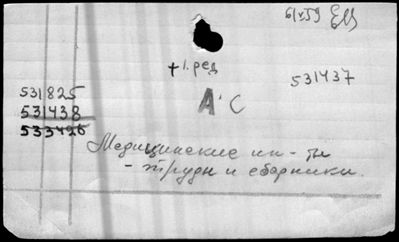 61х59
+ 1. ред
531437
531825
531438
533426
А·С
Медицинские ин-ты
- труды и сборники.